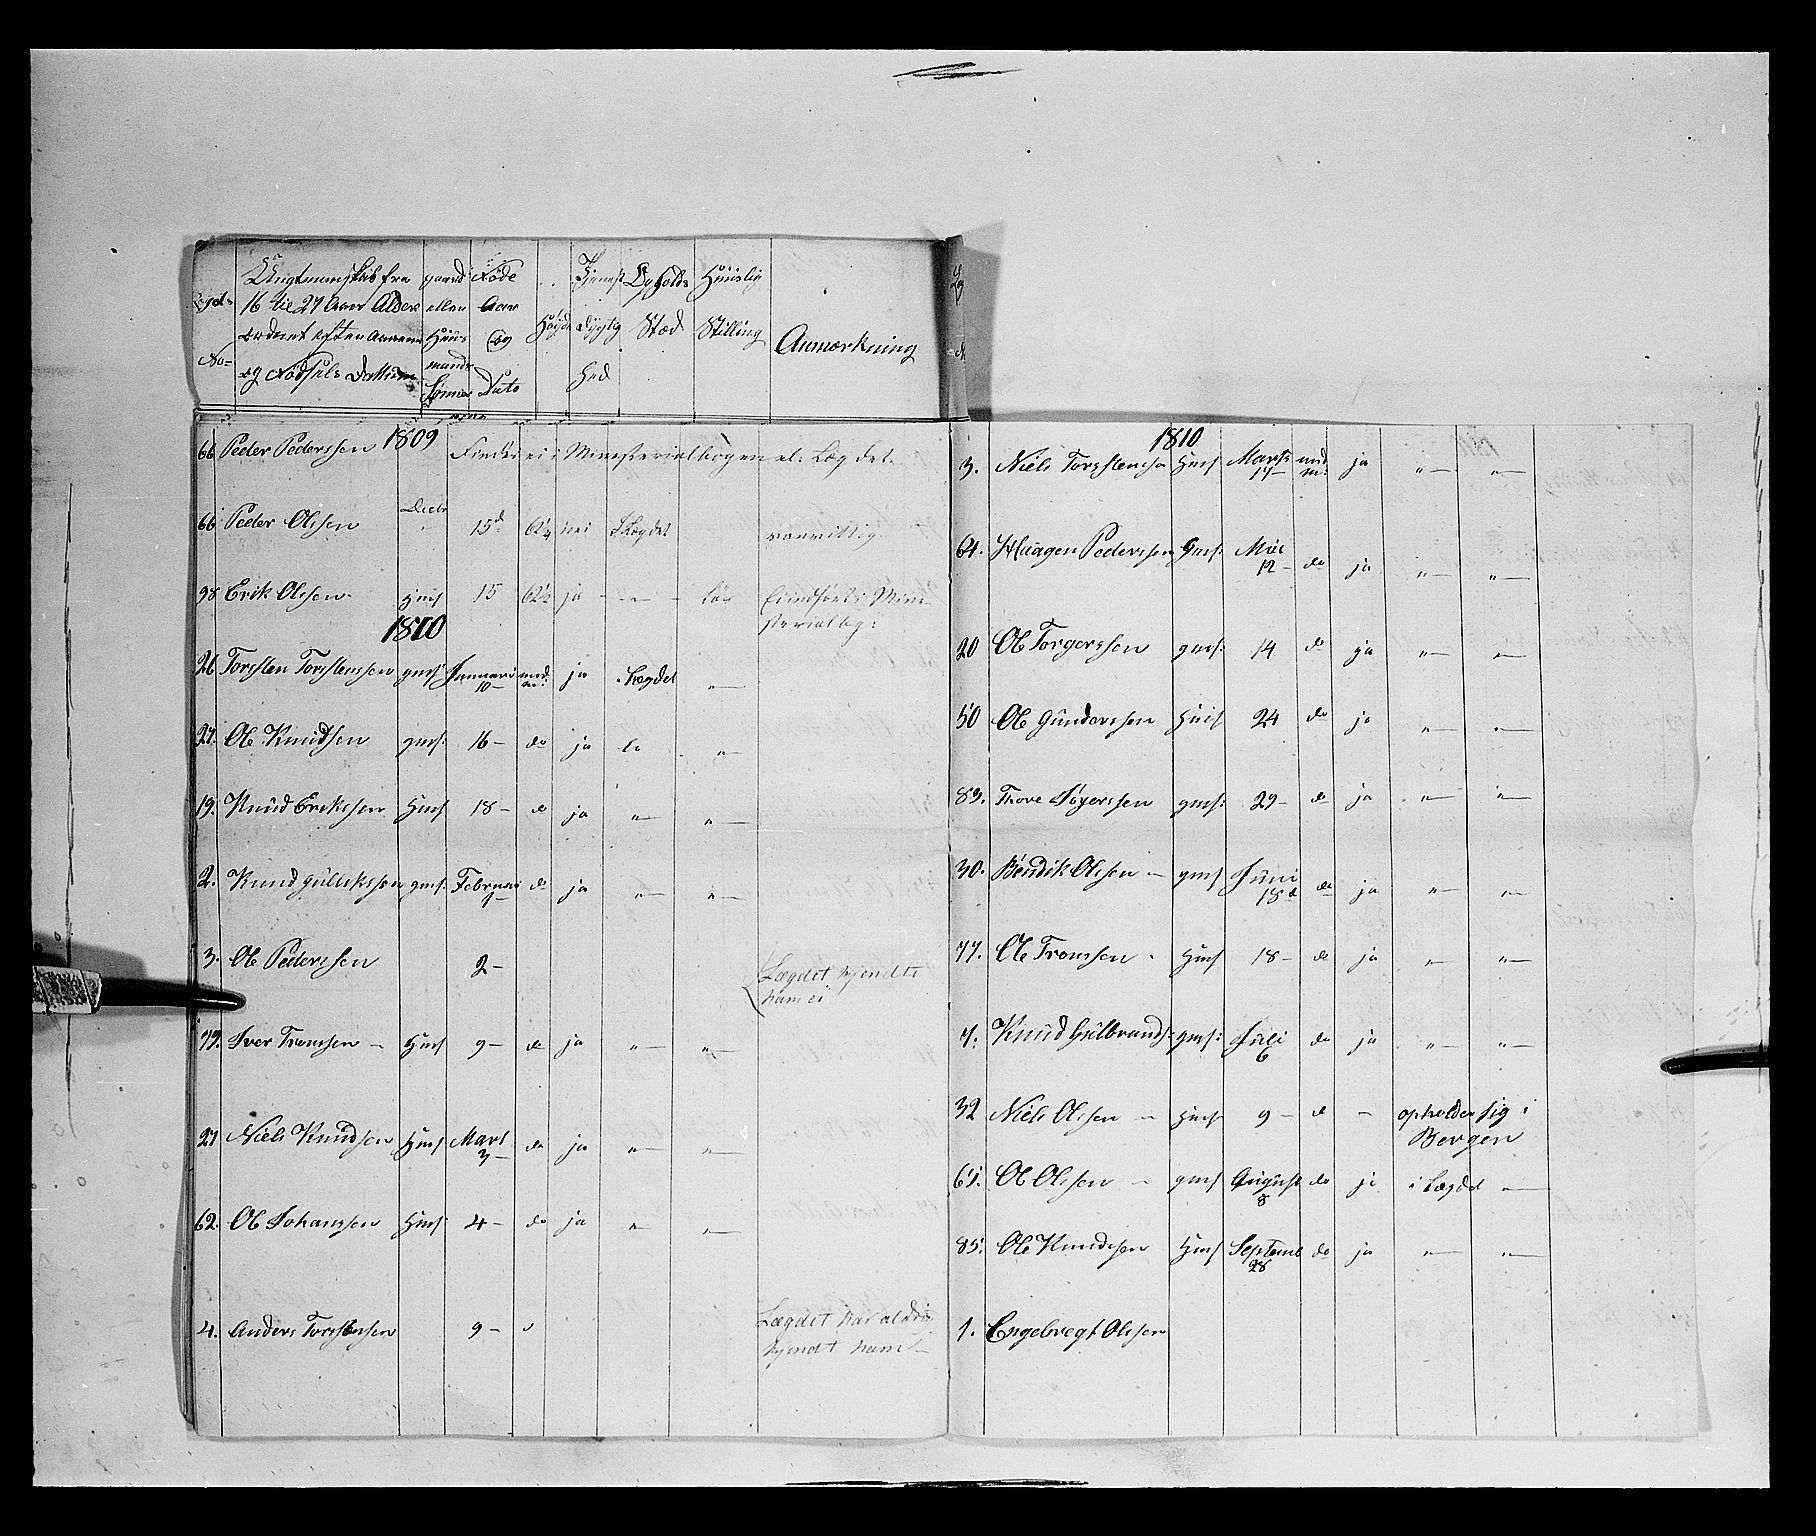 Lægd- No-
Ungtmandskab fra 16 til 27 Aars Alder ordnet efter Aarene og Fødsels Dattum
gaard eller Huus mands Sønner
Føde Aar og Dato
Høyde
Tjenest dygtig hed
Opholds Stæd
Huuslig Stilling
Anmærkning
1809
66 Peder Pederssen Findes ei i Ministerialbogen el. Lægdet.
66 Peder Olssen Decbr 15d nei i Lægdet vanvittig
98 Erik Olssen Hms 15 ja " løs
1810
26 Torsten Torstenssen gmf Januari 10 und m: ja i Lægdet "
27. Ole Knudsen gmf: 16 - do ja do "
19. Knud Erikssen Hmf 18 - do ja " "
2. Knud Gulliksson gmf. Februari 1 - do ja " "
3. Ole Pederssen 2 - Lægdet kjendte ham ei
79. Iver Tronssen - Hmf 9 - do ja " "
27 Niels Knudssen Hmf Mart 3 - do ja " "
62. Ole Johanssen Hmf 4 - do ja " "
4. Anders Torstensen 9 - " Lægdet har aldrig kjendt ham -
1810
3. Niels Torstenssøn Hmf Marts 17 - und m: ja " "
64. Haagen Pederssen gmf: Mai 12 - do ja " "
20 Ole Torgerssen gmf: 14 do ja " "
50 Ole Gunderssen Hmf 24 do ja " "
83. Thore gmf: 29 - do ja " "
30. Bendik Olssen - gmf Juni 18d do ja " "
77. Ole Tronssen - Hmf 18 - do ja " "
7. Knud Gulbrands: gmf: Juli 6 do ja " "
32 Niels Olssen - Hmf 9 - do - opholder sig i
Bergen
65. Ole Olssen - gmf August 8 do ja i Lægdet "
85. Ole Knudssen Hmf Septembr 28 do ja " "
1. Engebregt Olssen